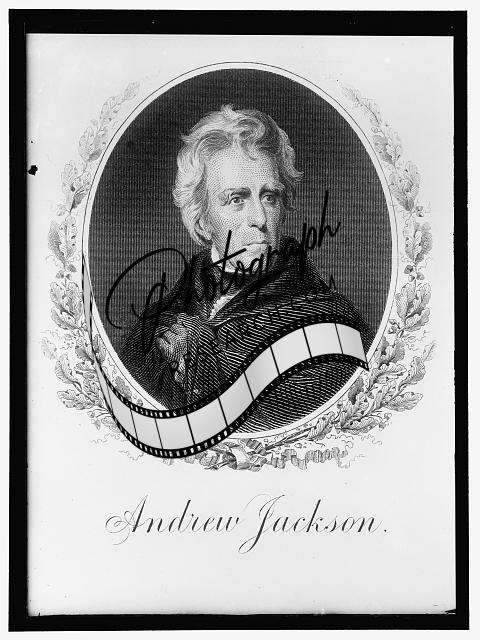 Photograph
Andrew Jackson.